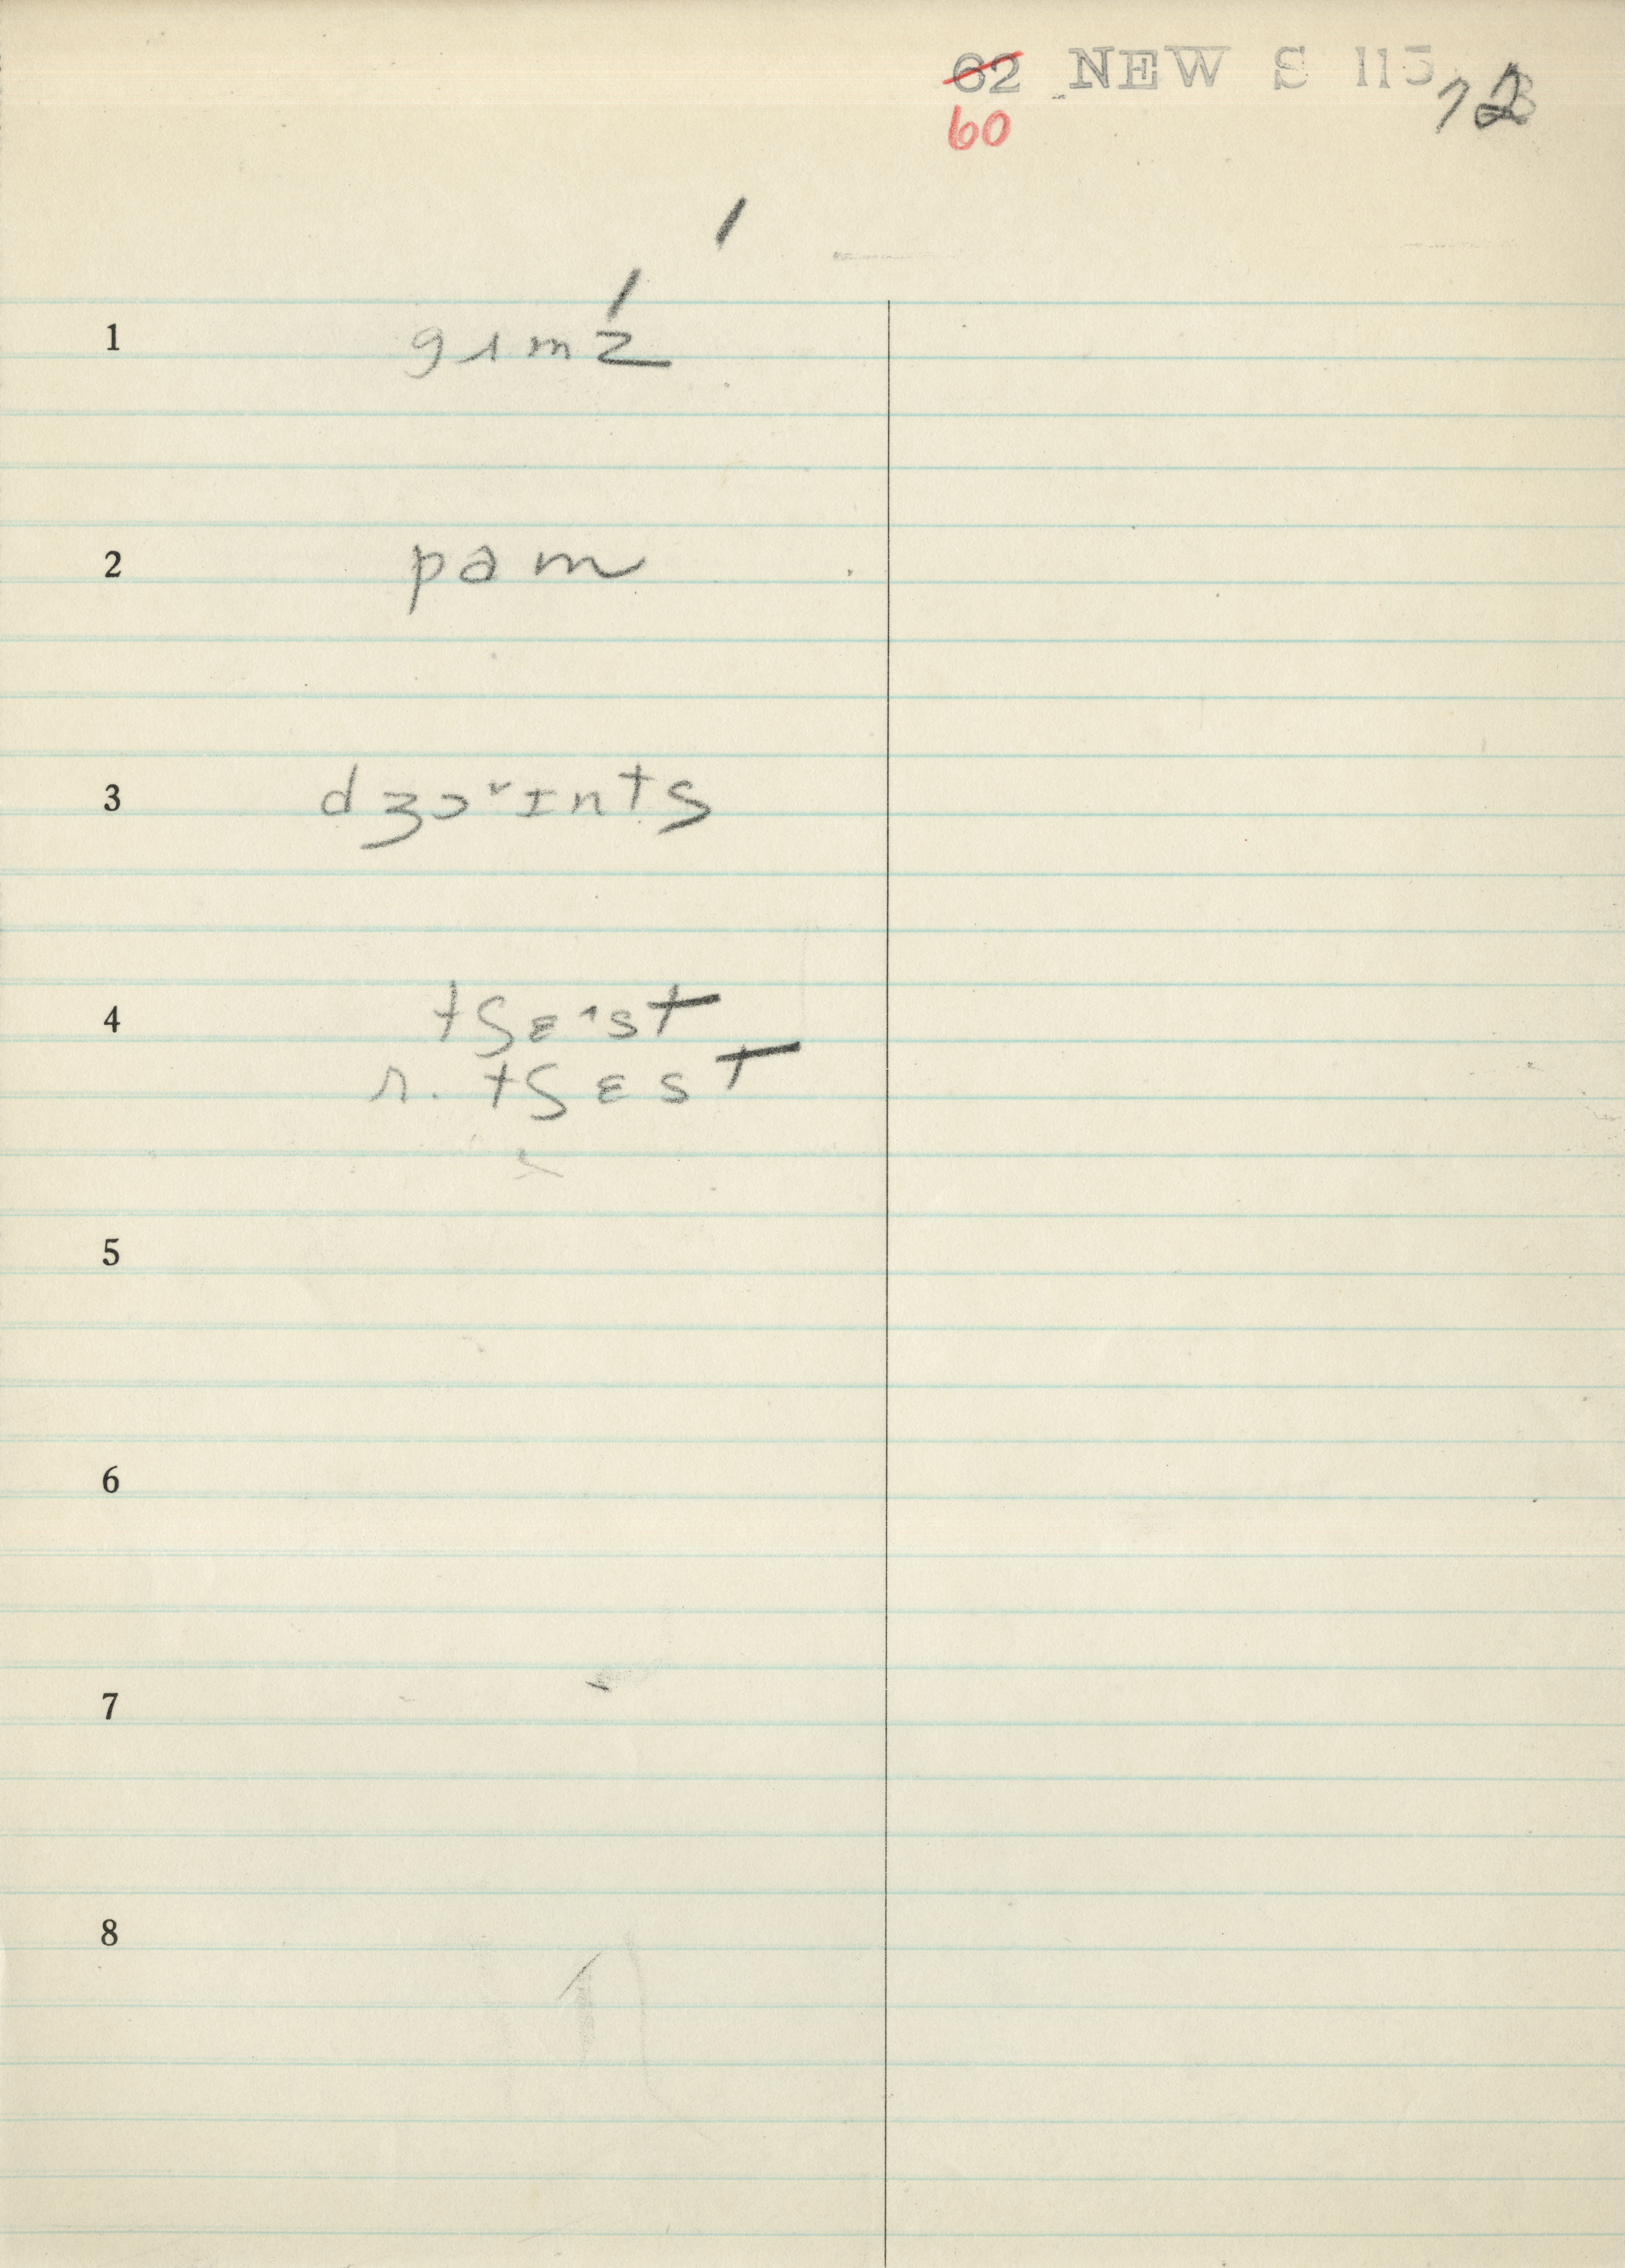 62 NEW S 115
60
1 gɪmź
2 pam
3 dʒɔʳɪntʃ
4 tʃɛ^st
r. tʃɛst
5
6
7
8